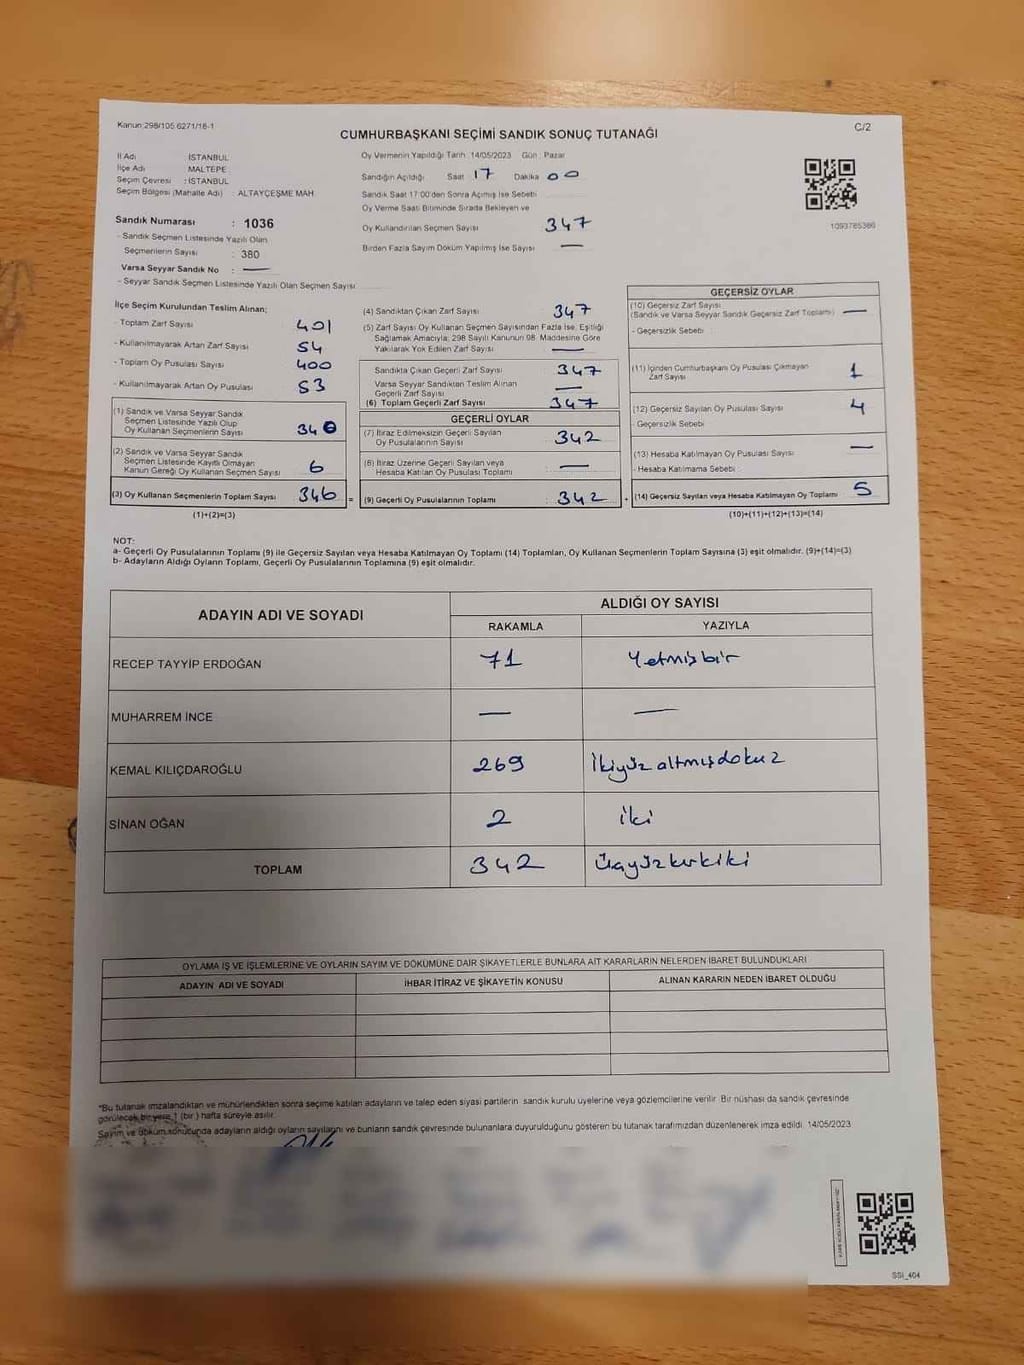 Kanun:298/105 6271/18-1
CUMHURBAŞKANI SEÇİMİ SANDIK SONUÇ TUTANAĞI
C/2
İl Adı : İSTANBUL
İlçe Adı : MALTEPE
Seçim Çevresi : İSTANBUL
Seçim Bölgesi (Mahalle Adı) : ALTAYÇEŞME MAH
Sandık Numarası : 1036
- Sandık Seçmen Listesinde Yazılı Olan
Seçmenlerin Sayısı : 380
Varsa Seyyar Sandık No : —
- Seyyar Sandık Seçmen Listesinde Yazılı Olan Seçmen Sayısı
Oy Vermenin Yapıldığı Tarih: 14/05/2023 Gün : Pazar
Sandığın Açıldığı Saat 17 Dakika 00
Sandık Saat 17:00'den Sonra Açılmış İse Sebebi
Oy Verme Saati Bitiminde Sırada Bekleyen ve
Oy Kullandırılan Seçmen Sayısı 347
Birden Fazla Sayım Döküm Yapılmış İse Sayısı —
1093785386
İlçe Seçim Kurulundan Teslim Alınan;
- Toplam Zarf Sayısı 401
- Kullanılmayarak Artan Zarf Sayısı 54
- Toplam Oy Pusulası Sayısı 400
- Kullanılmayarak Artan Oy Pusulası 53
(1) Sandık ve Varsa Seyyar Sandık
Seçmen Listesinde Yazılı Olup
Oy Kullanan Seçmenlerin Sayısı 340
(2) Sandık ve Varsa Seyyar Sandık
Seçmen Listesinde Kayıtlı Olmayan
Kanun Gereği Oy Kullanan Seçmen Sayısı 6
(3) Oy Kullanan Seçmenlerin Toplam Sayısı 346 =
(1)+(2)=(3)
(4) Sandıktan Çıkan Zarf Sayısı 347
(5) Zarf Sayısı Oy Kullanan Seçmen Sayısından Fazla İse, Eşitliği
Sağlamak Amacıyla; 298 Sayılı Kanunun 98. Maddesine Göre
Yakılarak Yok Edilen Zarf Sayısı —
Sandıkta Çıkan Geçerli Zarf Sayısı 347
Varsa Seyyar Sandıktan Teslim Alınan
Geçerli Zarf Sayısı —
(6) Toplam Geçerli Zarf Sayısı 347
GEÇERLİ OYLAR
(7) İtiraz Edilmeksizin Geçerli Sayılan
Oy Pusulalarının Sayısı 342
(8) İtiraz Üzerine Geçerli Sayılan veya
Hesaba Katılan Oy Pusulası Toplamı —
(9) Geçerli Oy Pusulalarının Toplamı 342 +
GEÇERSİZ OYLAR
(10) Geçersiz Zarf Sayısı
(Sandık ve Varsa Seyyar Sandık Geçersiz Zarf Toplamı) —
- Geçersizlik Sebebi :
(11) İçinden Cumhurbaşkanı Oy Pusulası Çıkmayan
Zarf Sayısı 1
(12) Geçersiz Sayılan Oy Pusulası Sayısı 4
- Geçersizlik Sebebi :
(13) Hesaba Katılmayan Oy Pusulası Sayısı —
- Hesaba Katılmama Sebebi :
(14) Geçersiz Sayılan veya Hesaba Katılmayan Oy Toplamı 5
(10)+(11)+(12)+(13)=(14)
NOT:
a- Geçerli Oy Pusulalarının Toplamı (9) ile Geçersiz Sayılan veya Hesaba Katılmayan Oy Toplamı (14) Toplamları, Oy Kullanan Seçmenlerin Toplam Sayısına (3) eşit olmalıdır. (9)+(14)=(3)
b- Adayların Aldığı Oyların Toplamı, Geçerli Oy Pusulalarının Toplamına (9) eşit olmalıdır.
ADAYIN ADI VE SOYADI
ALDIĞI OY SAYISI
RAKAMLA YAZIYLA
RECEP TAYYİP ERDOĞAN 71 Yetmişbir
MUHARREM İNCE — —
KEMAL KILIÇDAROĞLU 269 İkiyüzaltmışdokuz
SİNAN OĞAN 2 iki
TOPLAM 342 üçyüzkırkiki
OYLAMA İŞ VE İŞLEMLERİNE VE OYLARIN SAYIM VE DÖKÜMÜNE DAİR ŞİKAYETLERLE BUNLARA AİT KARARLARIN NELERDEN İBARET BULUNDUKLARI
ADAYIN ADI VE SOYADI İHBAR İTİRAZ VE ŞİKAYETİN KONUSU ALINAN KARARIN NEDEN İBARET OLDUĞU
*Bu tutanak imzalandıktan ve mühürlendikten sonra seçime katılan adayların ve talep eden siyasi partilerin sandık kurulu üyelerine veya gözlemcilerine verilir. Bir nüshası da sandık çevresinde
görülecek bir yere 1 (bir) hafta süreyle asılır.
Sayım ve döküm sonucunda adayların aldığı oyların sayılarını ve bunların sandık çevresinde bulunanlara duyurulduğunu gösteren bu tutanak tarafımızdan düzenlenerek imza edildi. 14/05/2023
SSI_404